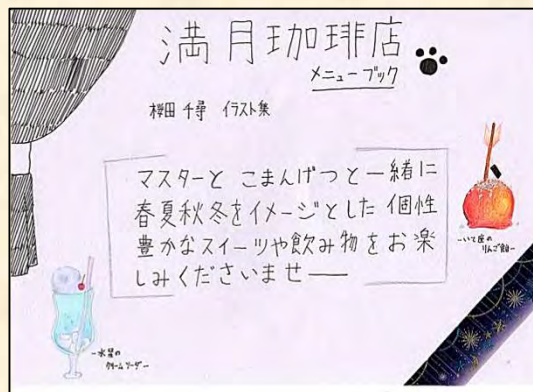 満月珈琲店
メニューブック
桜田 千尋 イラスト集
マスターと こまんげつと一緒に
春夏秋冬をイメージとした 個性
豊かなスイーツや飲み物をお楽
しみくださいませ――
-いて座の
りんご飴-
-水星の
クリームソーダ-